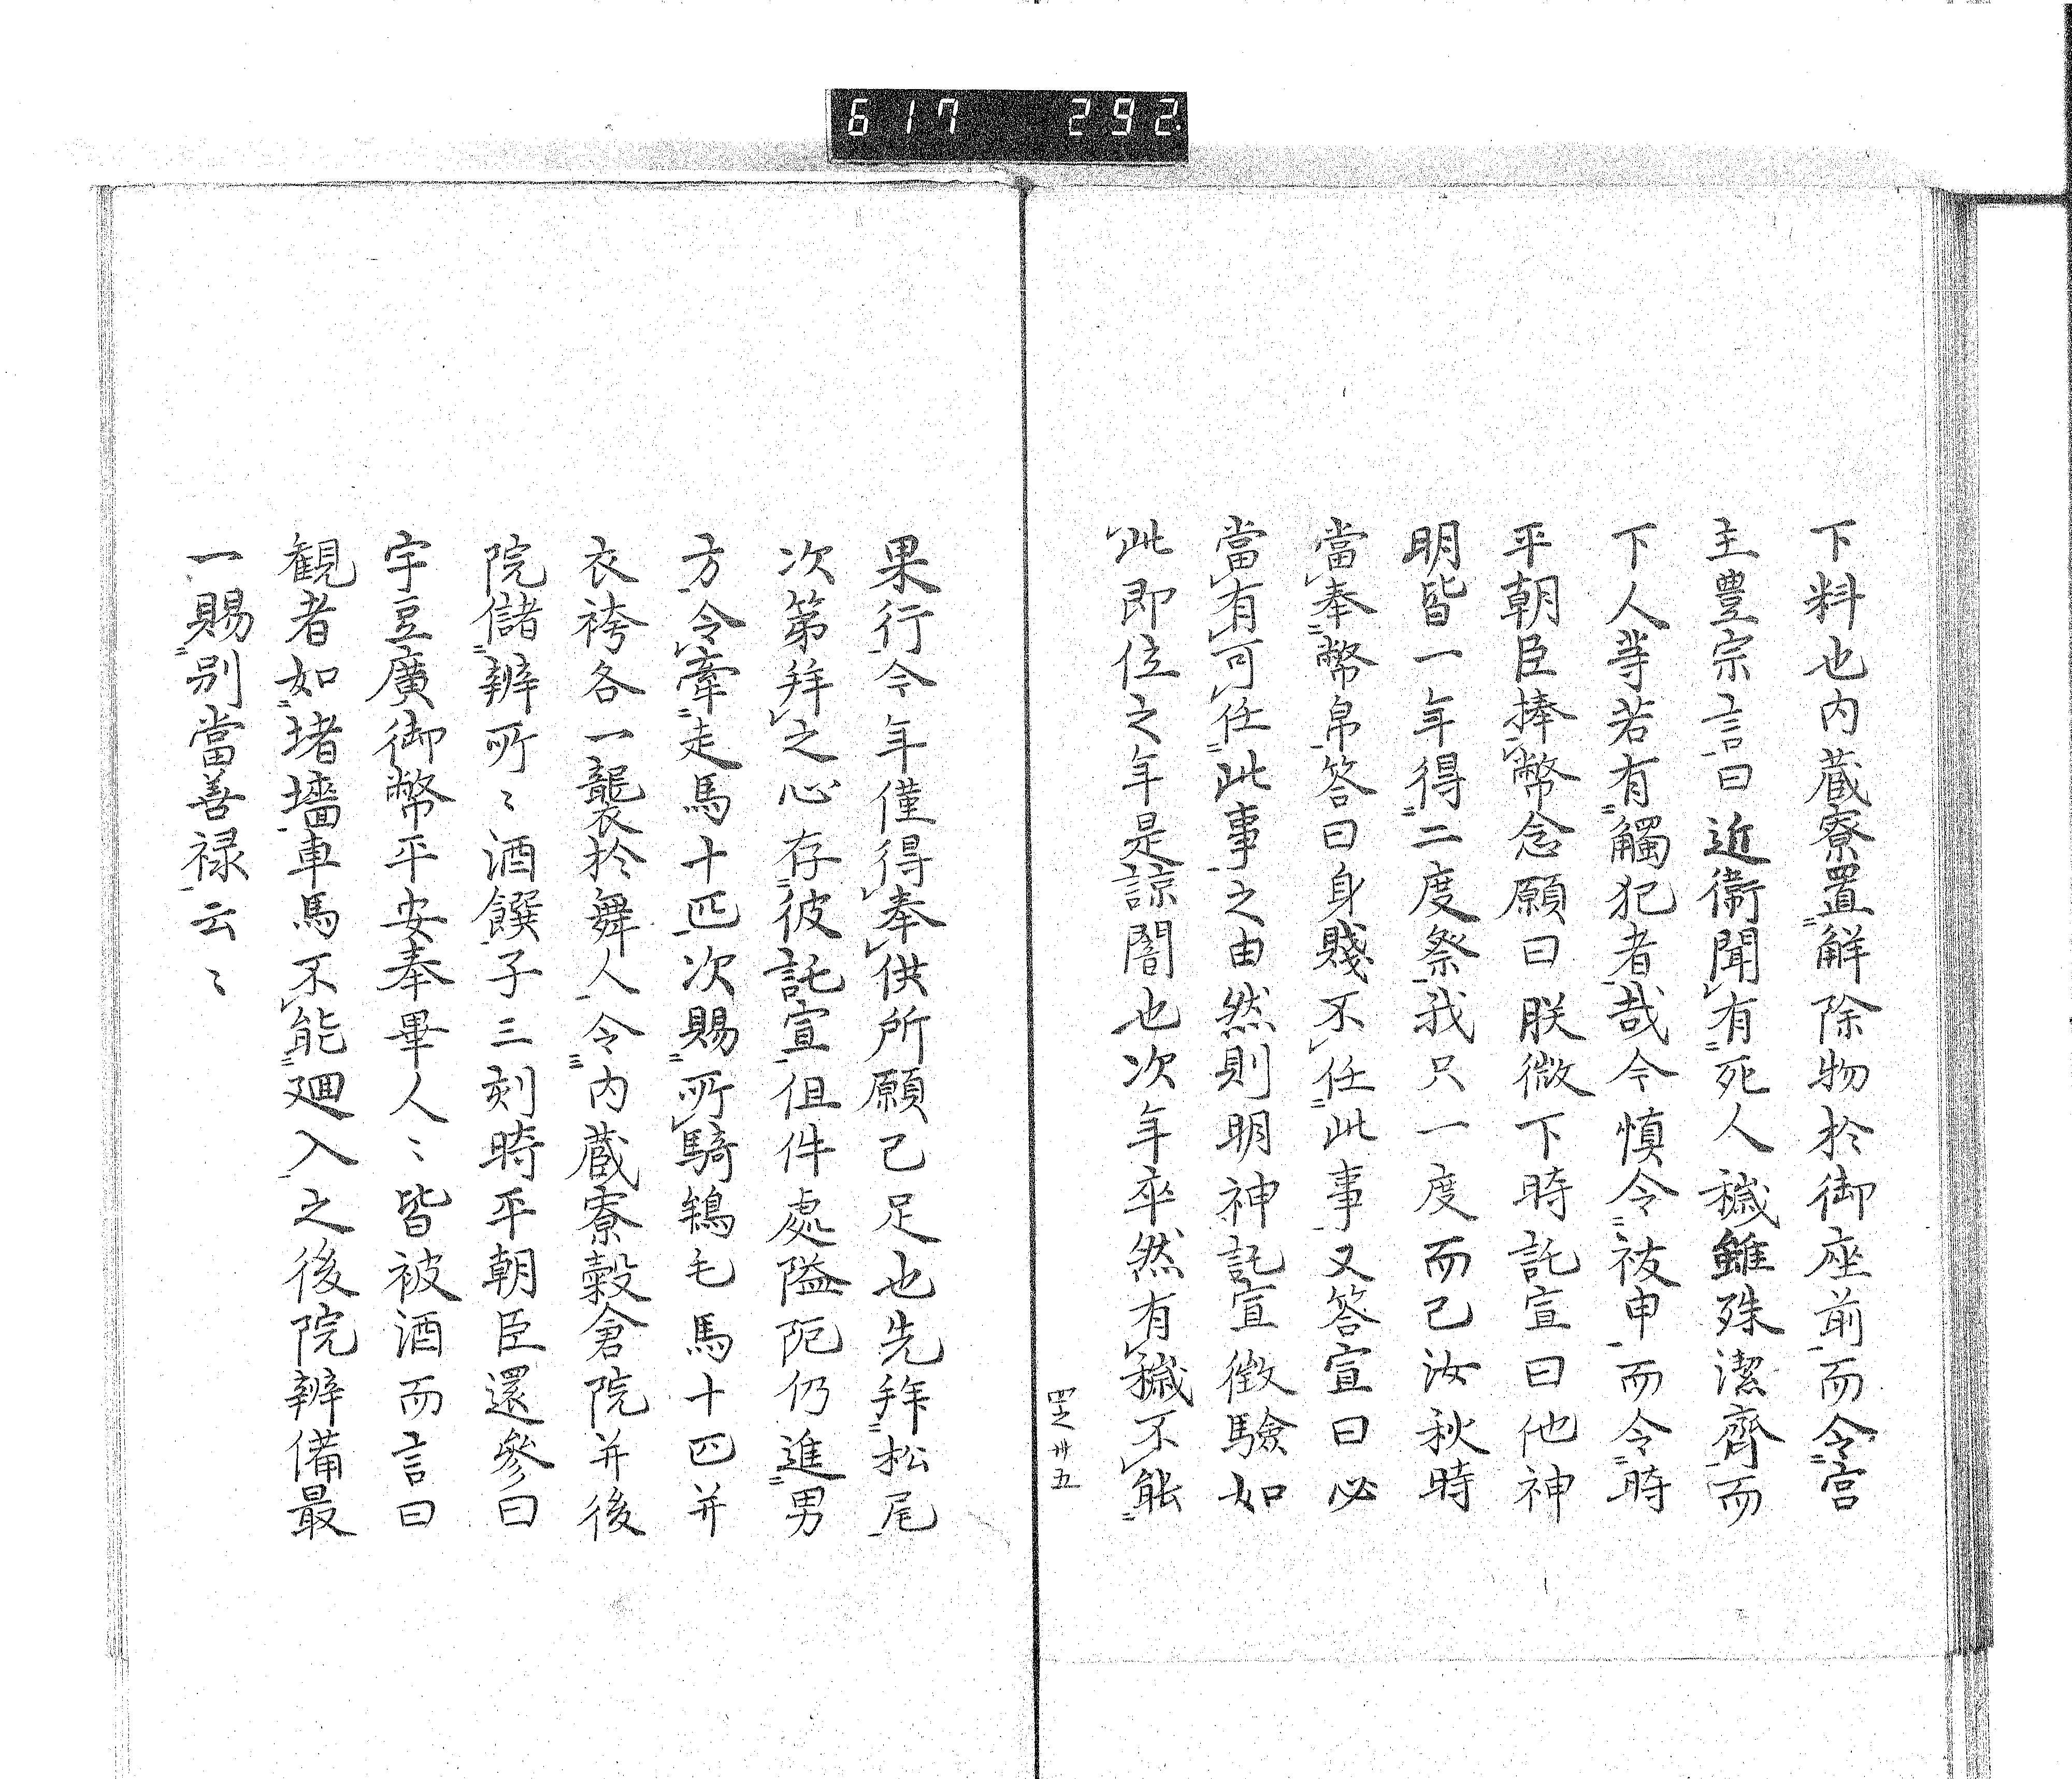 617 292.
下料也内蔵寮置解除物於御座前而令宮
主豊宗言曰近衛聞有死人穢雖殊潔齊而
下人等若有觸犯者哉今慎令祓申而令時
平朝臣捧幣念願曰朕微下時託宣曰他神
明皆一年得二度祭我只一度而已汝秋時
當奉幣帛答曰身賤不任此事又答宣曰必
當有可任此事之由然則明神託宣徴驗如
此即位之年是諒闇也次年卒然有穢不能
四之卅五
果行今年僅得奉供所願已足也先拜松尾
次第拜之心存彼託宣但件處隘阨仍進男
方令牽走馬十匹次賜所騎鴾毛馬十四并
衣袴各一襲於舞人令内蔵寮穀倉院并後
院儲辨所々酒饌子三刻時平朝臣還參曰
宇豆廣御幣平安奉畢人々皆被酒而言曰
観者如堵墻車馬不能廻入之後院辨備最
一賜別當善禄云々